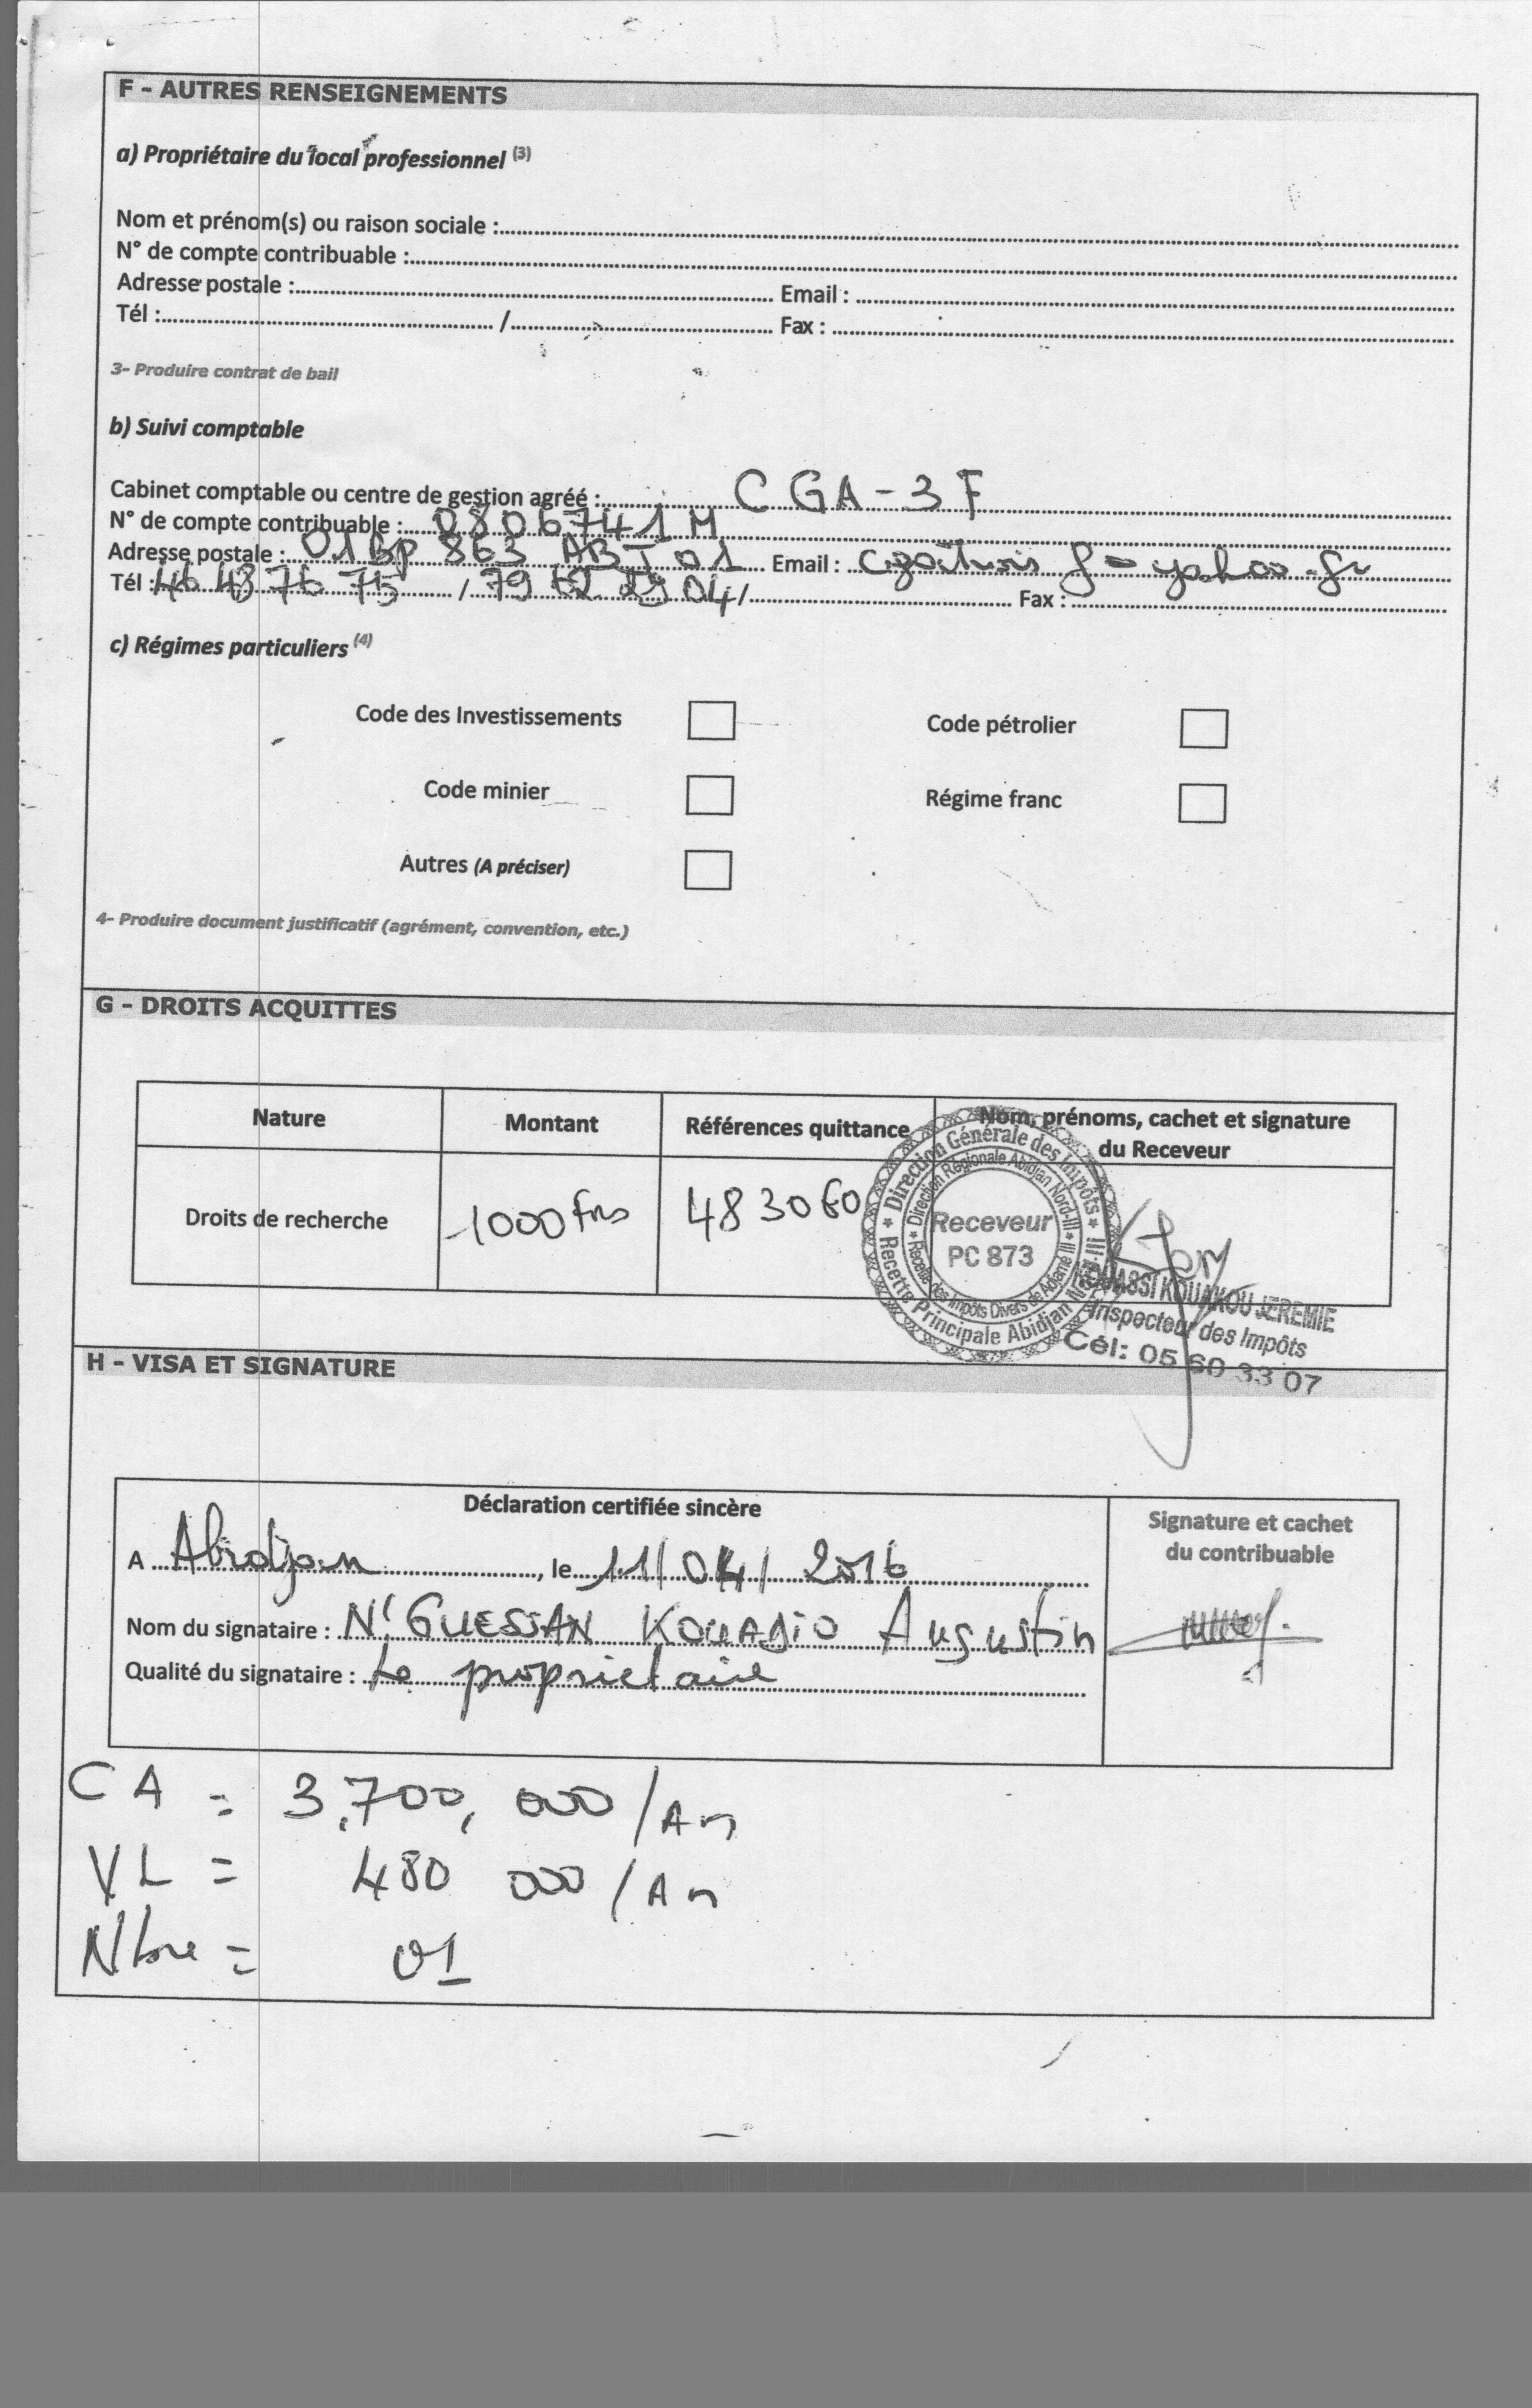 F - AUTRES RENSEIGNEMENTS
a) Propriétaire du local professionnel (3)
Nom et prénom(s) ou raison sociale :
N° de compte contribuable :
Adresse postale : Email :
Tél : / Fax :
3- Produire contrat de bail
b) Suivi comptable
Cabinet comptable ou centre de gestion agréé : CGA - 3F
N° de compte contribuable : 0806741 M
Adresse postale : 01 BP 863 ABJ 01 Email :
Tél : 46 43 76 75 / 79 62 29 04 / Fax :
c) Régimes particuliers (4)
Code des Investissements Code pétrolier
Code minier Régime franc
Autres (A préciser)
4- Produire document justificatif (agrément, convention, etc.)
G - DROITS ACQUITTES
Nature Montant Références quittance Nom, prénoms, cachet et signature du Receveur
Droits de recherche 1000 Frs 483060
Direction Générale des Impôts
Direction Régionale Abidjan Nord-III
Receveur
PC 873
Recette des Impôts Divers de Adjamé III
Recette Principale Abidjan Nord-III
KOUASSI KOUAKOU JEREMIE
Inspecteur des Impôts
Cél: 05 60 33 07
H - VISA ET SIGNATURE
Déclaration certifiée sincère
Signature et cachet
du contribuable
A Abidjan, le 11/04/2016
Nom du signataire : N'GUESSAN KOUADIO Augustin
Qualité du signataire : Le proprietaire
CA = 3.700,000/An
VL = 480 000/An
Nbre = 01